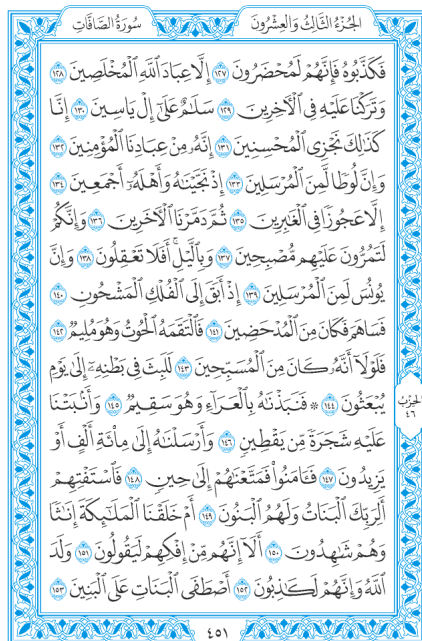 سُورَةُ الصَّافَّاتِ الجُزْءُ الثَّالِثُ وَالعِشْرُونَ
فَكَذَّبُوهُ فَإِنَّهُمْ لَمُحْضَرُونَ ١٢٧ إِلَّا عِبَادَ ٱللَّهِ ٱلْمُخْلَصِينَ ١٢٨
وَتَرَكْنَا عَلَيْهِ فِى ٱلْأَخِرِينَ ١٢٩ سَلَٰمٌ عَلَىٰٓ إِلْ يَاسِينَ ١٣٠ إِنَّا
كَذَٰلِكَ نَجْزِى ٱلْمُحْسِنِينَ ١٣١ إِنَّهُۥ مِنْ عِبَادِنَا ٱلْمُؤْمِنِينَ ١٣٢
وَإِنَّ لُوطًا لَّمِنَ ٱلْمُرْسَلِينَ ١٣٣ إِذْ نَجَّيْنَٰهُ وَأَهْلَهُۥٓ أَجْمَعِينَ ١٣٤
إِلَّا عَجُوزًا فِى ٱلْغَٰبِرِينَ ١٣٥ ثُمَّ دَمَّرْنَا ٱلْأَخَرِينَ ١٣٦ وَإِنَّكُمْ
لَتَمُرُّونَ عَلَيْهِم مُّصْبِحِينَ ١٣٧ وَبِٱلَّيْلِ ۗ أَفَلَا تَعْقِلُونَ ١٣٨ وَإِنَّ
يُونُسَ لَمِنَ ٱلْمُرْسَلِينَ ١٣٩ إِذْ أَبَقَ إِلَى ٱلْفُلْكِ ٱلْمَشْحُونِ ١٤٠
فَسَاهَمَ فَكَانَ مِنَ ٱلْمُدْحَضِينَ ١٤١ فَٱلْتَقَمَهُ ٱلْحُوتُ وَهُوَ مُلِيمٌ ١٤٢
فَلَوْلَآ أَنَّهُۥ كَانَ مِنَ ٱلْمُسَبِّحِينَ ١٤٣ لَلَبِثَ فِى بَطْنِهِۦٓ إِلَىٰ يَوْمِ
يُبْعَثُونَ ١٤٤ ۞ فَنَبَذْنَٰهُ بِٱلْعَرَآءِ وَهُوَ سَقِيمٌ ١٤٥ وَأَنۢبَتْنَا
الحِزْبُ
٤٦
عَلَيْهِ شَجَرَةً مِّن يَقْطِينٍ ١٤٦ وَأَرْسَلْنَٰهُ إِلَىٰ مِا۟ئَةِ أَلْفٍ أَوْ
يَزِيدُونَ ١٤٧ فَـَٔامَنُوا۟ فَمَتَّعْنَٰهُمْ إِلَىٰ حِينٍ ١٤٨ فَٱسْتَفْتِهِمْ
أَلِرَبِّكَ ٱلْبَنَاتُ وَلَهُمُ ٱلْبَنُونَ ١٤٩ أَمْ خَلَقْنَا ٱلْمَلَٰٓئِكَةَ إِنَٰثًا
وَهُمْ شَٰهِدُونَ ١٥٠ أَلَآ إِنَّهُم مِّنْ إِفْكِهِمْ لَيَقُولُونَ ١٥١ وَلَدَ
ٱللَّهُ وَإِنَّهُمْ لَكَٰذِبُونَ ١٥٢ أَصْطَفَى ٱلْبَنَاتِ عَلَى ٱلْبَنِينَ ١٥٣
٤٥١